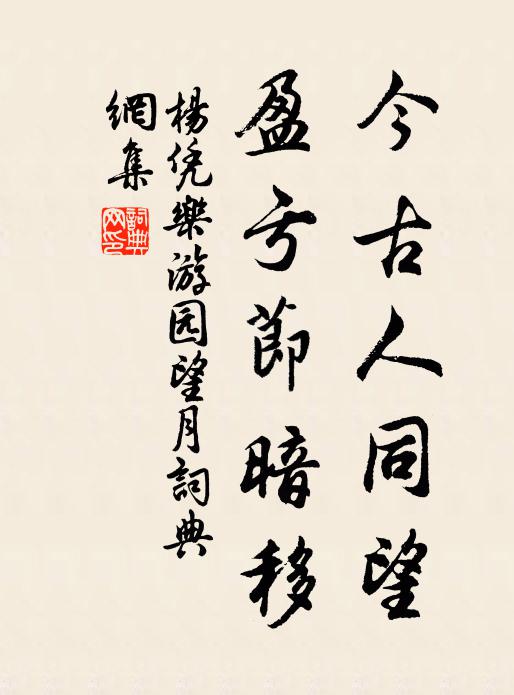 今古人同望
盈亏節暗移
楊凭樂游园望月詞典
網集
詞典
网印